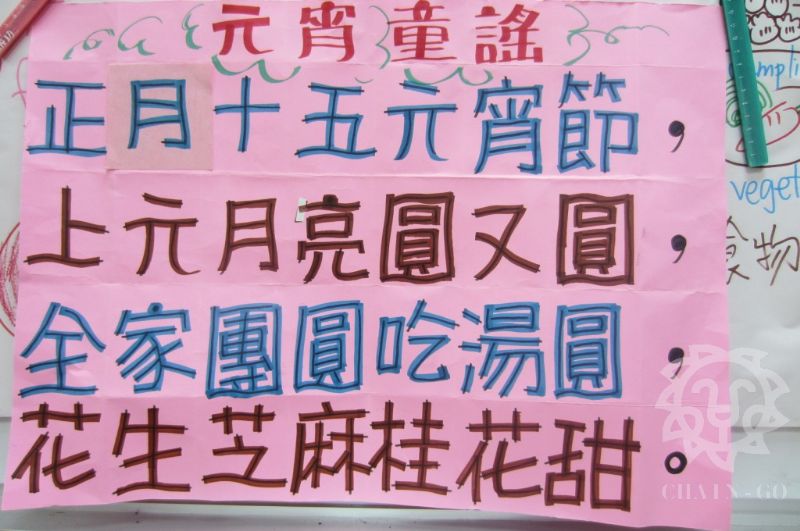 元宵童謠
正月十五元宵節，
上元月亮圓又圓，
全家團圓吃湯圓，
花生芝麻桂花甜。
mpli
veget
食物
CHAIN-GO